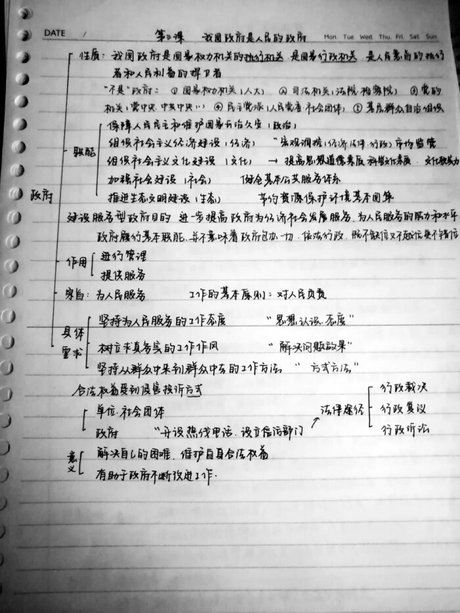 DATE /
第3课 我国政府是人民的政府
Mon Tue Wed Thu. Fri. Sat Sun
性质: 我国政府是国家权力机关的执行机关 是国家行政机关, 是人民意旨的执行
者和人民利益的捍卫者
"不是"政府: ① 国家权力机关(人大) ② 司法机关(法院 检察院) ③ 党的
机关(党中央 中央) ④ 民主党派,人民党委 社会团体) ⑤ 基层群众自治组织
政府
职能
保障人民民主和维护国家长治久安(政治)
组织社会主义经济建设(经济) "宏观调控(经济 法律 行政)市场监管
组织社会主义文化建设(文化) → 提高思想道德素质 科学文化素质
加强社会建设(社会) 健全基本公共服务体系
推进生态文明建设(生态) 节约资源保护环境基本国策
建设服务型政府目的 进一步提高政府为经济社会发展服务,为人民服务的能力和水平
政府履行基本职能, 并不意味着政府包办一切, 依法行政, 既不缺位又不越位更不错位
作用
进行管理
提供服务
宗旨: 为人民服务 工作的基本原则: 对人民负责
具体
要求
坚持为人民服务的工作态度 "思想认识 态度"
树立求真务实的工作作风 "解决问题 效果"
坚持从群众中来到群众中去的工作方法 "方式方法"
合法权益受到侵害投诉方式
单位,社会团体
政府 "开设热线电话, 设立信访部门
法律途径
行政裁决
行政复议
行政诉讼
意义
解决自己的困难, 维护自身合法权益
有助于政府不断改进工作.